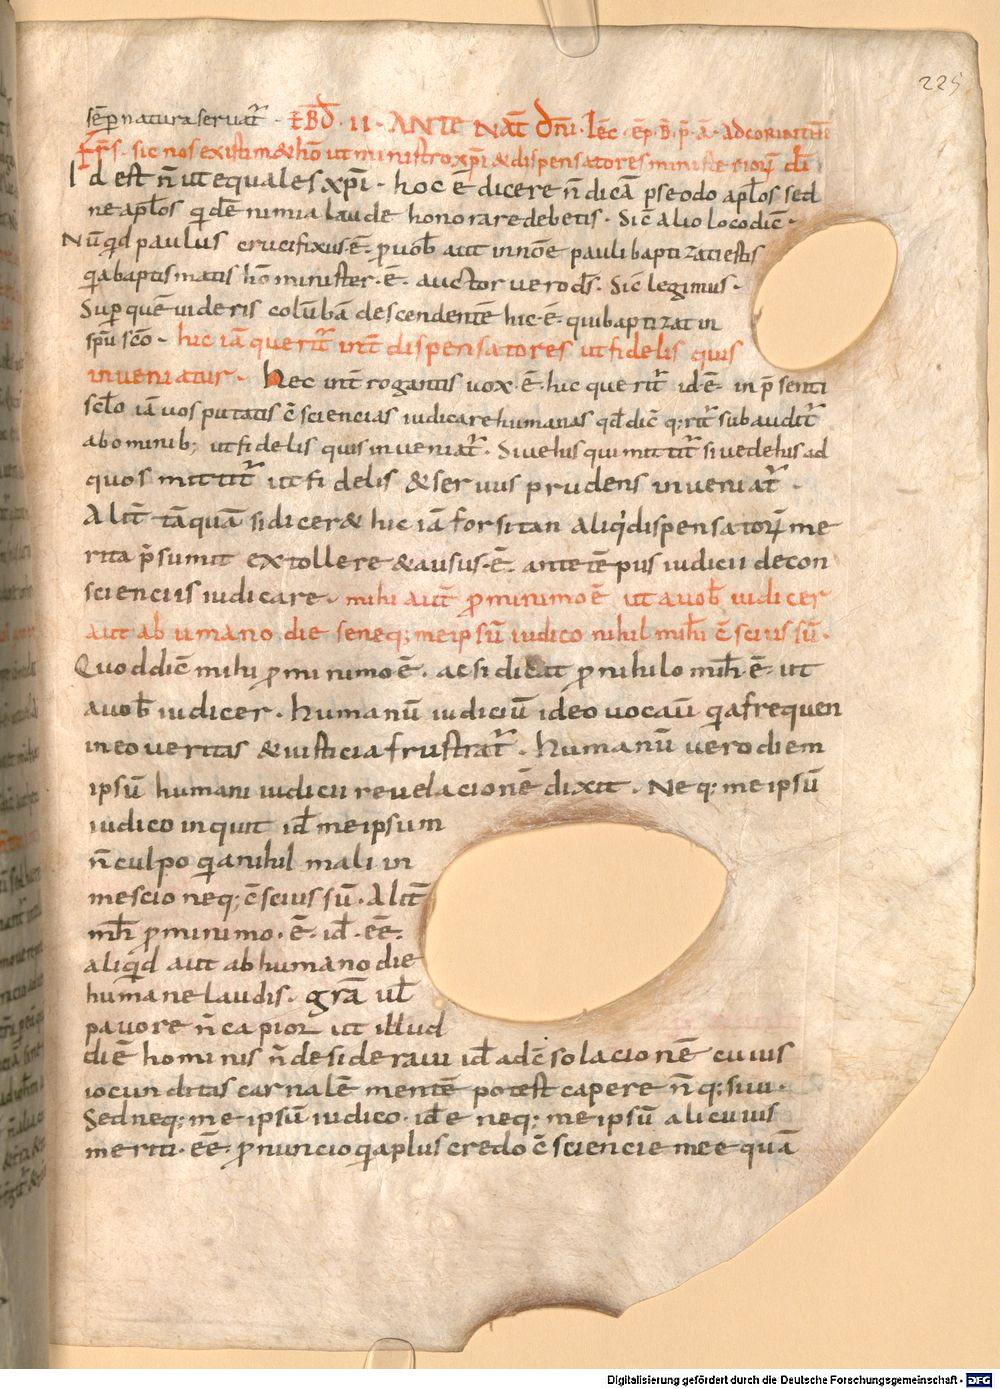 225
sēp natura seruat̄ · EBD̄ · II · ANTE NAT̄ DN̄I · Lēc · ep̄ · B̄ · p̄ · ā · AD CORINTIUM
Fr̄s · sic nos existim& hō ut ministro xp̄i & dispensatores ministeriorꝝ dī
Id est n̄ ut equales xp̄i · hoc ē dicere n̄ dicā pseodo apl̄os sed
ne apl̄os qdē nimia laude honorare debetis · Sic̄ alio loco dic̄ ·
Nūqd paulus crucifixus · ē · p uob̄ aut in nōe pauli baptizati estis
qa baptismatis hō minister · ē · auctor uero ds̄ · Sic̄ legimus ·
Sup quē uideris colūbā descendentē hic · ē · qui baptizat in
spū scō · hic iā querit̄ int̄ dispensatores ut fidelis quis
inueniatur · Hec int̄rogantis uox · ē · hic querit̄ id · ē · in p̄senti
sclo iā uos putatis c̄sciencias iudicare humanas qd̄ dic̄ q;rit̄ subaudit̄
ab ominib; ut fidelis quis inueniat̄ · Siue hus qui mittit̄ siue de hus ad
quos mittit̄ ut fidelis & seruus prudens inueniat̄ ·
Alit̄ tāquā si dicer& hic iā forsitan aliqi dispensatorꝝ me
rita p̄sumit extollere & ausus · ē · ante tēpus iudicii de con
scienciis iudicare · mihi aut̄ p minimo ē ut a uob̄ iudicer
aut ab umano die se neq; me ipsū iudico nihil mihi c̄scius sū ·
Quod dic̄ mihi p minimo ē · ac si dicat p nihilo mh̄ · ē · ut
a uob̄ iudicer · humanū iudiciū ideo uocauı̄ qa frequen
in eo ueritas & iusticia frustrat̄ · humanū uero diem
ipsū humani iudicii reuelacionē dixit · Neq; me ipsū
iudico inquit id̄ me ipsum
n̄ culpo qa nihil mali in
me scio neq; c̄scius sū · Alit̄
mh̄ p minimo · ē · id̄ · eē ·
aliqd aut ab humano die
humane laudis · grā ul̄
pauore n̄ capior ut illud
diē hominis n̄ desideraui id̄ ad c̄solacionē cuius
iocunditas carnalē mentē potest capere n̄ q;siui ·
Sed neq; me ipsū iudico · id̄ e neq; me ipsū alicuius
meriti · eē · pnuncio qa plus credo c̄sciencie mee quā
Digitalisierung gefördert durch die Deutsche Forschungsgemeinschaft - DFG